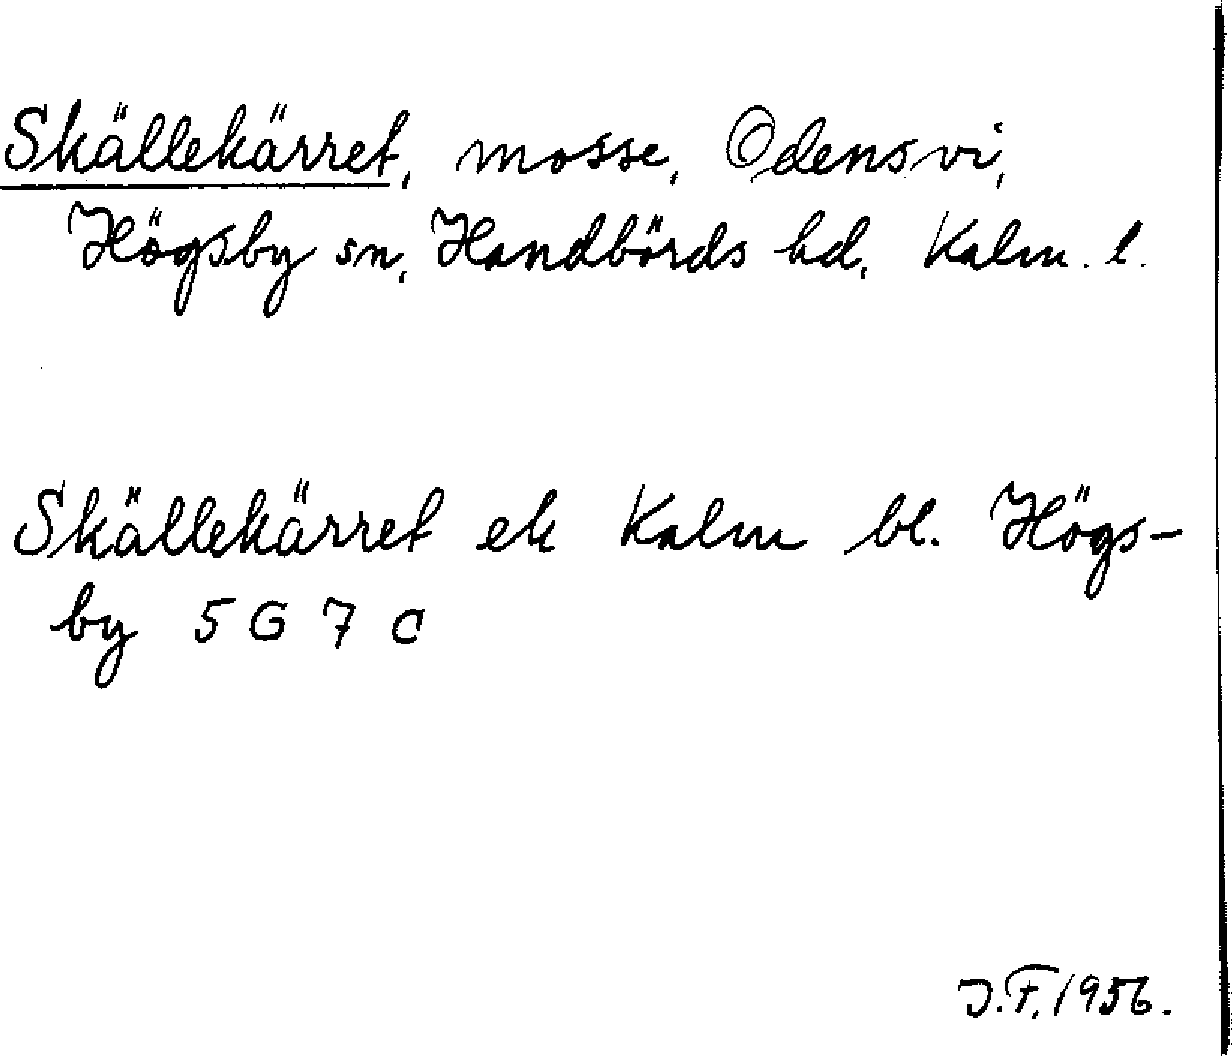 Skällekärret, mosse, Odensvi,
Högsby sn, Handbörds hd, Kalm. l.
Skällekärret ek Kalm bl. Högs-
by 5 G 7 c
J.F. 1956.